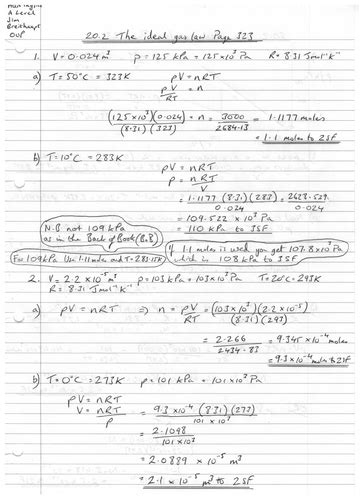 A Level
Jim
Breithaupt
OUP
20.2 The ideal gas law Page 323
1. V = 0.024 m³ p = 125 kPa = 125 x 10³ Pa R = 8.31 Jmol⁻¹K⁻¹
a) T = 50°C = 323K pV = nRT
pV/RT = n
(125 x 10³)(0.024)/(8.31)(323) = n = 3000/2684.13 = 1.1177 moles
= 1.1 moles to 2SF
b) T = 10°C = 283K pV = nRT
p = nRT/V
= 1.1177 (8.31)(283)/0.024 = 2628.529/0.024
= 109.522 x 10³ Pa
= 110 kPa to 3SF
N.B not 109 kPa
as in the Back of Book (B.B)
For 109kPa Use 1.11 moles and T = 283.15K
If 1.1 moles is used you get 107.8 x 10³ Pa
which is 108 kPa to 3SF
2. V = 2.2 x 10⁻⁵ m³ p = 103 kPa = 103 x 10³ Pa T = 20°C = 293K
R = 8.31 Jmol⁻¹K⁻¹
a) pV = nRT ⇒ n = pV/RT = (103 x 10³)(2.2 x 10⁻⁵)/(8.31)(293)
= 2.266/2434.83 = 9.345 x 10⁻⁴ moles
= 9.3 x 10⁻⁴ moles to 2SF
b) T = 0°C = 273K p = 101 kPa = 101 x 10³ Pa
pV = nRT
V = nRT/p = 9.3 x 10⁻⁴ (8.31)(273)/101 x 10³
= 2.1098/101 x 10³
= 2.0889 x 10⁻⁵ m³
= 2.1 x 10⁻⁵ m³ to 2SF